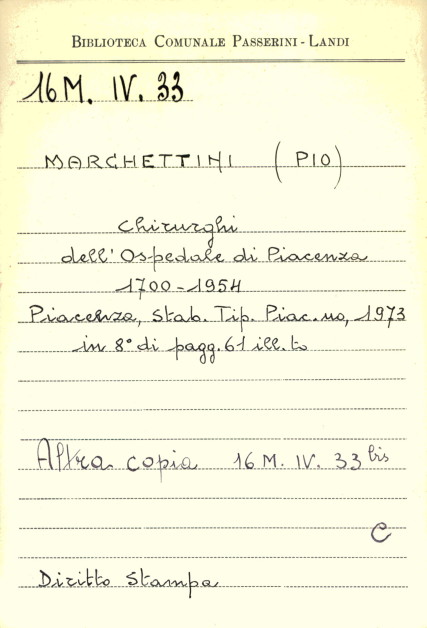 BIBLIOTECA COMUNALE PASSERINI - LANDI
16 M. IV. 33
MARCHETTINI (PIO)
Chirurghi
dell'Ospedale di Piacenza
1700-1954
Piacenza, Stab. Tip. Piac.no, 1973
in 8° di pagg. 61 ill.to
Altra copia 16 M. IV. 33 bis
C
Diritto Stampa